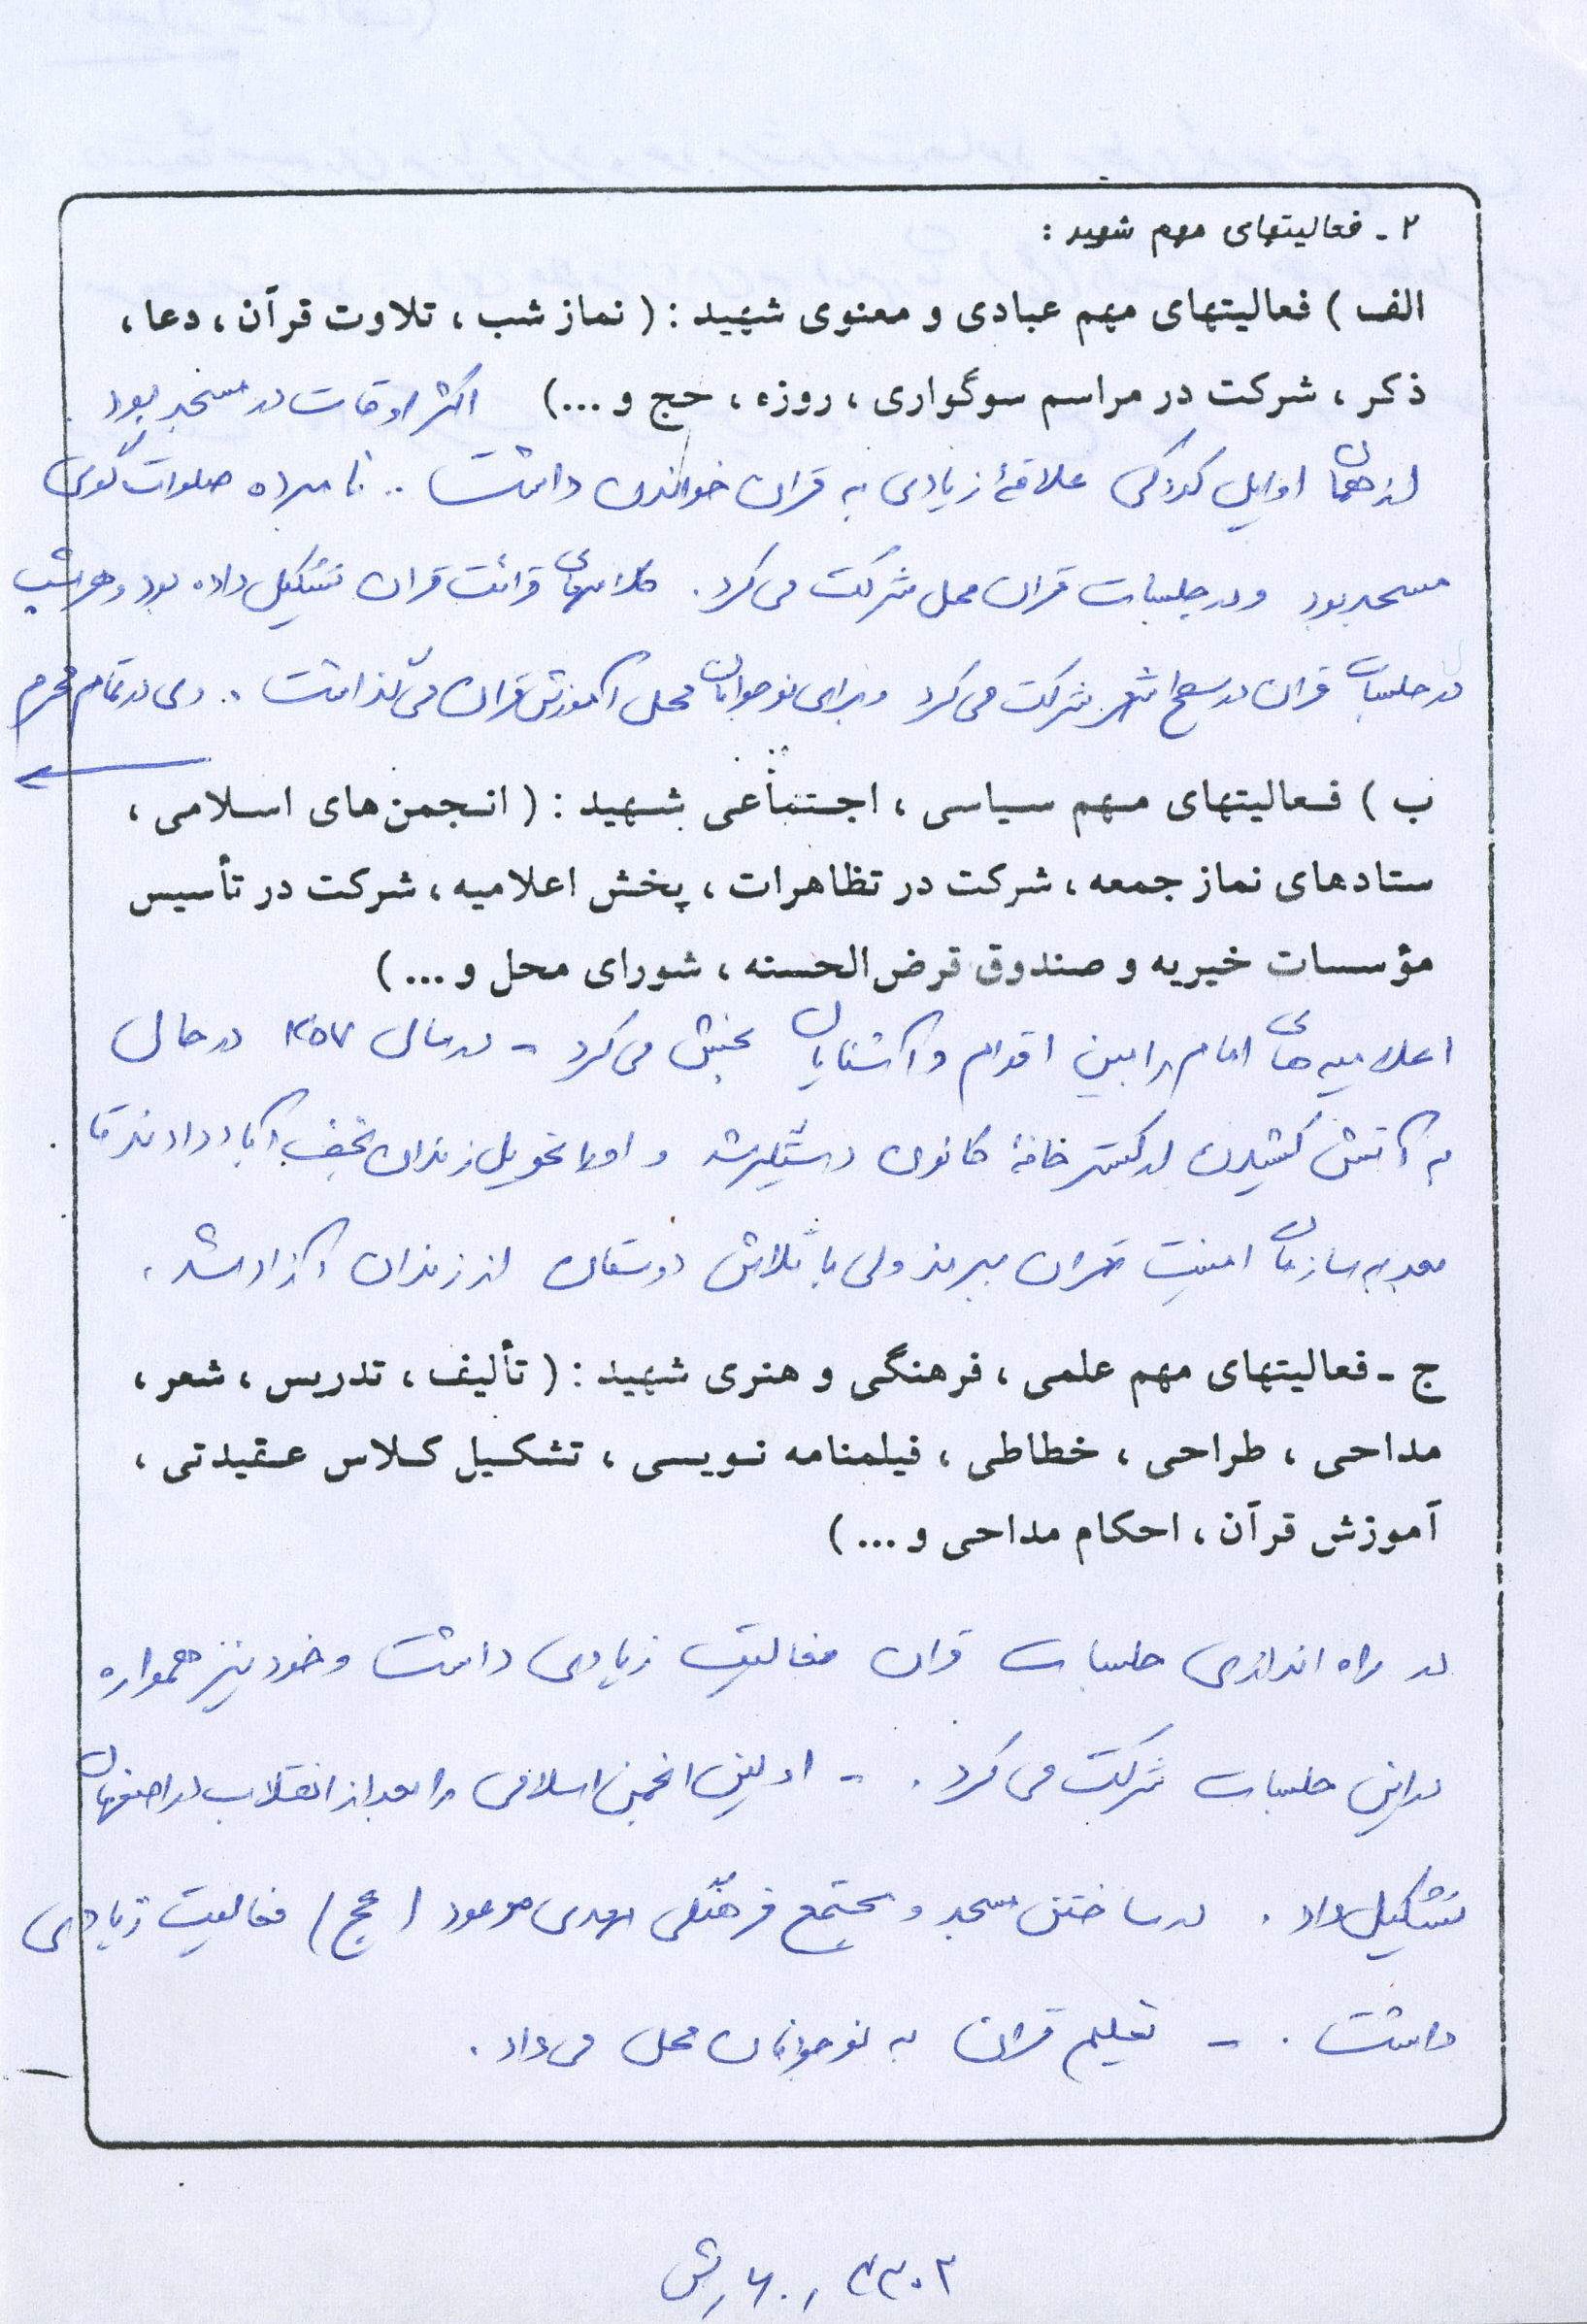 ۲ - فعالیتهای مهم شهید :
الف ) فعالیتهای مهم عبادی و معنوی شهید : ( نماز شب ، تلاوت قرآن ، دعا ،
ذکر ، شرکت در مراسم سوگواری ، روزه ، حج و ...) اکثر اوقات در مسجد بود .
از همان اوایل کودکی علاقهٔ زیادی به قران خواندن داشت .. نامبرده صلوات گوی
مسجد بود و در جلسات قران محل شرکت می کرد . کلاسهای قرائت قران تشکیل داده بود و هر شب
در جلسات قران در سطح شهر شرکت می کرد و برای نوجوانان محل آموزش قران می گذاشت .. وی در تمام محرم
ب ) فعالیتهای مهم سیاسی ، اجتماعی شهید : ( انجمن های اسلامی ،
ستادهای نماز جمعه ، شرکت در تظاهرات ، پخش اعلامیه ، شرکت در تأسیس
مؤسسات خیریه و صندوق قرض الحسنه ، شورای محل و ... )
اعلامیه های امام را بین اقوام و آشنایان پخش می کرد - در سال ۱۳۵۷ در حال
به آتش کشیدن خانهٔ کانون دستگیر شد و او را تحویل زندان نجف آباد دادند تا
بعد به سازمان امنیت تهران ببرند ولی با تلاش دوستان از زندان آزاد شد .
ج - فعالیتهای مهم علمی ، فرهنگی و هنری شهید : ( تألیف ، تدریس ، شعر ،
مداحی ، طراحی ، خطاطی ، فیلمنامه نویسی ، تشکیل کلاس عقیدتی ،
آموزش قرآن ، احکام مداحی و ... )
در راه اندازی جلسات قران فعالیت زیادی داشت و خود نیز همواره
در این جلسات شرکت می کرد . - اولین انجمن اسلامی را بعد از انقلاب در اصفهان
تشکیل داد . در ساختن مسجد و مجتمع فرهنگی مهدی موعود (عج) فعالیت زیادی
داشت . - تعلیم قران به نوجوانان محل می داد .